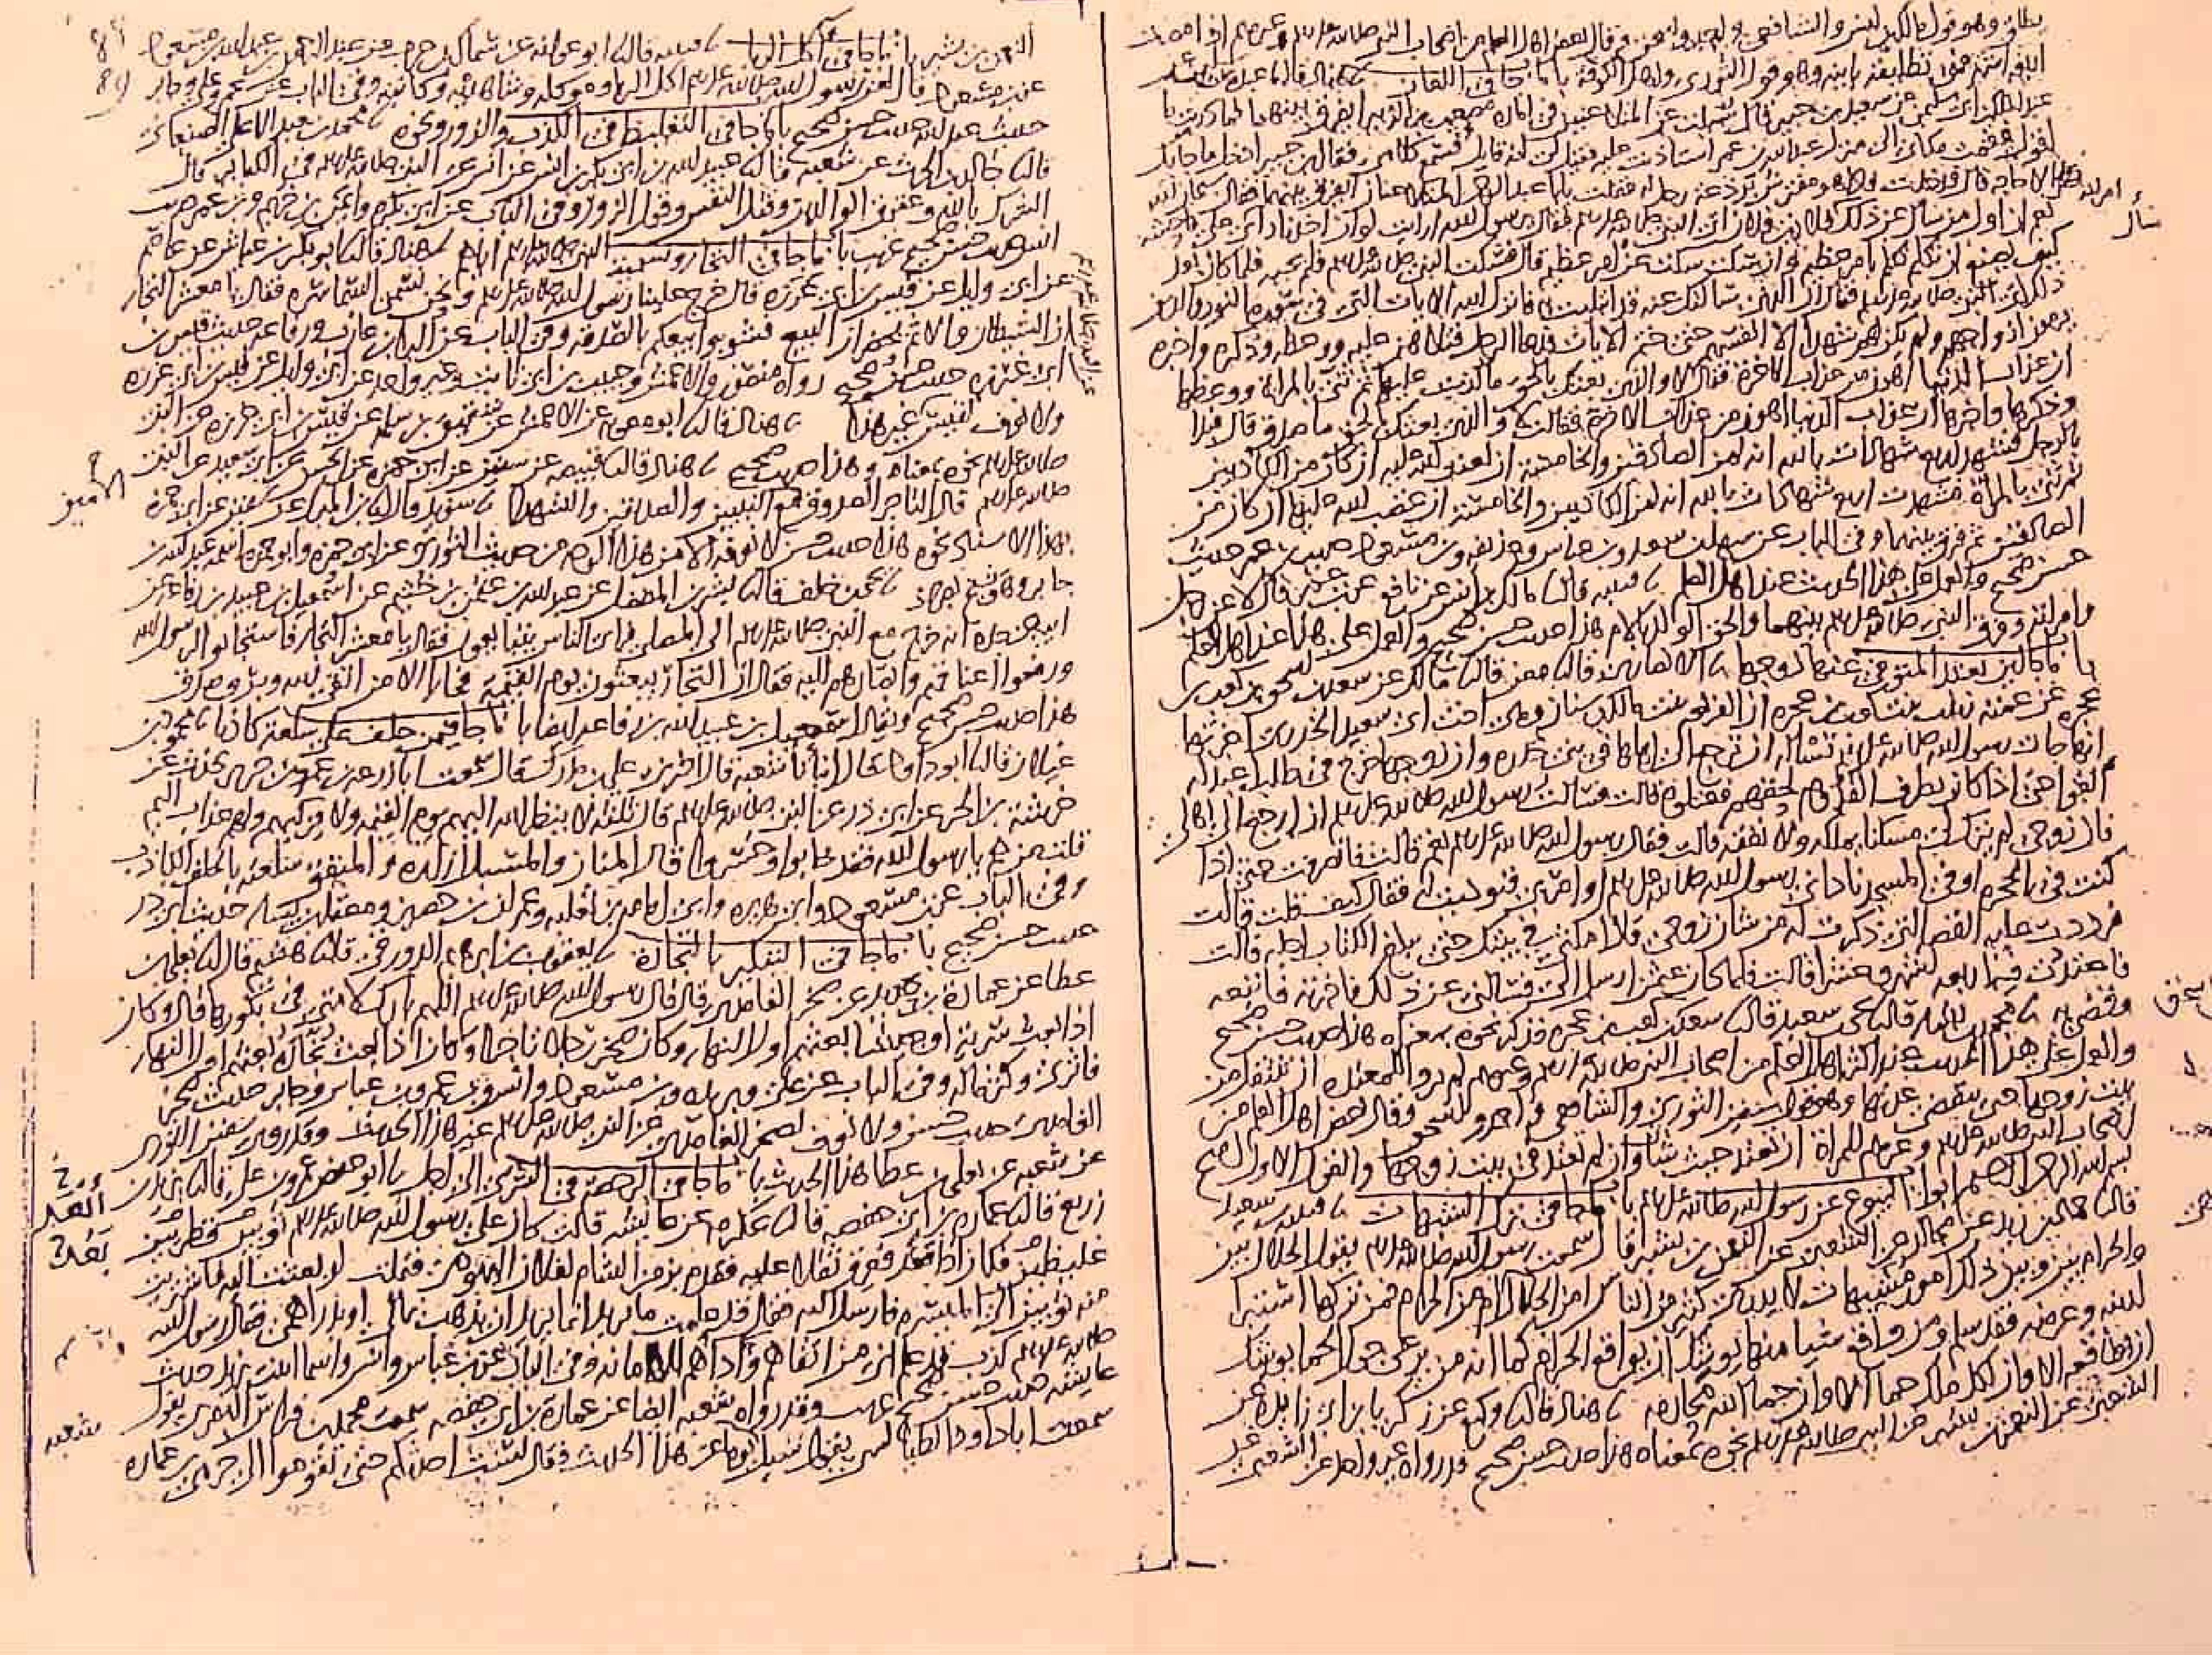 يطلق وهو قول مالك بن انس والشافعي واحمد واسحق وقال بعض اهل العلم من اصحاب النبي صلى الله عليه وسلم وغيرهم اذا مضت
اربعة اشهر فهي تطليقة باينة وهو قول الثوري واهل الكوفة باب ما جا في اللعان هناد قال عبدة بن سليمن
عبد الملك بن ابي سليمن عن سعيد بن جبير قال سئلت عن المتلاعنين في امارة مصعب بن الزبير ايفرق بينهما فما دريت ما
اقول فقمت مكاني الى منزل عبد الله بن عمر استاذنت عليه فقيل لي انه قايل فسمع كلامي فقال ابن جبير ادخل ما جا بك
الا حاجة قال فدخلت فاذا هو مفترش برذعة رحل له فقلت يابا عبد الرحمن المتلاعنان ايفرق بينهما فقال سبحان الله
نعم ان اول من سال عن ذلك فلان بن فلان اتى النبي صلى الله عليه وسلم فقال يرسول الله ارايت لو ان احدنا راى امراته على فاحشة
كيف يصنع ان تكلم تكلم بامر عظيم وان سكت سكت عن امر عظيم قال فسكت النبي صلى الله عليه وسلم فلم يجبه فلما كان بعد
ذلك اتى النبي صلى الله عليه وسلم فقال ان الذي سالتك عنه قد ابتليت به فانزل الله الايات التي في سورة النور والذين
يرمون ازواجهم ولم يكن لهم شهدا الا انفسهم حتى ختم الايات فدعا الرجل فتلاهن عليه ووعظه وذكره واخبره
ان عذاب الدنيا اهون من عذاب الاخرة فقال لا والذي بعثك بالحق ما كذبت عليها ثم ثنى بالمراة ووعظها
وذكرها واخبرها ان عذاب الدنيا اهون من عذاب الاخرة فقالت لا والذي بعثك بالحق ما صدق قال فبدا
بالرجل فشهد اربع شهادات بالله انه لمن الصادقين والخامسة ان لعنة الله عليه ان كان من الكاذبين
ثم ثنى بالمراة فشهدت اربع شهادات بالله انه لمن الكاذبين والخامسة ان غضب الله عليها ان كان من
الصادقين ثم فرق بينهما وفي الباب عن سهل بن سعد وبن عباس وحذيفة وبن مسعود حديث بن عمر حديث
حسن صحيح والعمل على هذا الحديث عند اهل العلم قتيبة قال مالك بن انس عن نافع عن بن عمر قال لاعن رجل
امراته وفرق النبي صلى الله عليه وسلم بينهما والحق الولد بالام هذا حديث حسن صحيح والعمل على هذا عند اهل العلم
باب ما جا اين تعتد المتوفى عنها زوجها الانصاري قال معن قال مالك عن سعد بن اسحق بن كعب بن
عجرة عن عمته زينب بنت كعب بن عجرة ان الفريعة بنت مالك بن سنان وهي اخت ابي سعيد الخدري اخبرتها
انها جات رسول الله صلى الله عليه وسلم تساله ان ترجع الى اهلها في بني خدرة وان زوجها خرج في طلب اعبد له
ابقوا حتى اذا كان بطرف القدوم لحقهم فقتلوه قالت فسالت رسول الله صلى الله عليه وسلم ان ارجع الى اهلي
فان زوجي لم يترك لي مسكنا يملكه ولا نفقة قالت فقال رسول الله صلى الله عليه وسلم نعم قالت فانصرفت حتى اذا
كنت في الحجرة او في المسجد ناداني رسول الله صلى الله عليه وسلم او امر بي فنوديت له فقال كيف قلت قالت
فرددت عليه القصة التي ذكرت له من شان زوجي قال امكثي في بيتك حتى يبلغ الكتاب اجله قالت
فاعتددت فيه اربعة اشهر وعشرا قالت فلما كان عثمن ارسل الي فسالني عن ذلك فاخبرته فاتبعه
وقضى به محمد بن بشار قال يحيى بن سعيد قال سعد بن اسحق بن كعب بن عجرة فذكر نحوه بمعناه هذا حديث حسن صحيح
والعمل على هذا الحديث عند اكثر اهل العلم من اصحاب النبي صلى الله عليه وسلم وغيرهم لم يروا للمعتدة ان تنتقل من
بيت زوجها حتى تنقضي عدتها وهو قول سفين الثوري والشافعي واحمد واسحق وقال بعض اهل العلم من
اصحاب النبي صلى الله عليه وسلم وغيرهم للمراة ان تعتد حيث شات وان لم تعتد في بيت زوجها والقول الاول اصح
بسم الله الرحمن الرحيم ابواب البيوع عن رسول الله صلى الله عليه وسلم باب ما جا في ترك الشبهات قتيبة بن سعيد
قال حماد بن زيد عن مجالد عن الشعبي عن النعمن بن بشير قال سمعت رسول الله صلى الله عليه وسلم يقول الحلال بين
والحرام بين وبين ذلك امور مشتبهات لا يدري كثير من الناس امن الحلال ام من الحرام فمن تركها استبرا
لدينه وعرضه فقد سلم ومن واقع شيا منها يوشك ان يواقع الحرام كما انه من يرعى حول الحما يوشك
ان يواقعه الا وان لكل ملك حما الا وان حما الله محارمه هناد قال وكيع عن زكريا بن ابي زايدة عن
الشعبي عن النعمن بن بشير عن النبي صلى الله عليه وسلم نحوه بمعناه هذا حديث حسن صحيح وقد رواه غير واحد عن الشعبي عن
النعمن بن بشير باب ما جا في اكل الربا قتيبة قال ابو عوانة عن سماك بن حرب عن عبد الرحمن بن عبد الله بن مسعود
عن بن مسعود قال لعن رسول الله صلى الله عليه وسلم اكل الربا وموكله وشاهديه وكاتبه وفي الباب عن عمر وعلي وجابر
حديث عبد الله حديث حسن صحيح باب ما جا في التغليظ في الكذب والزور ونحوه محمد بن عبد الاعلى الصنعاني
قال خالد بن الحرث عن شعبة قال عبيد الله بن ابي بكر بن انس عن انس عن النبي صلى الله عليه وسلم في الكباير قال
الشرك بالله وعقوق الوالدين وقتل النفس وقول الزور وفي الباب عن ابي بكرة وايمن بن خريم وبن عمر حديث
انس حديث حسن صحيح غريب باب ما جا في التجار وتسمية النبي صلى الله عليه وسلم اياهم هناد قال ابو بكر بن عياش عن عاصم
عن ابي وايل عن قيس بن ابي غرزة قال خرج علينا رسول الله صلى الله عليه وسلم ونحن نسمى السماسرة فقال يا معشر التجار
ان الشيطان والاثم يحضران البيع فشوبوا بيعكم بالصدقة وفي الباب عن البرا بن عازب ورفاعة حديث قيس بن
ابي غرزة حديث حسن صحيح رواه منصور والاعمش وحبيب بن ابي ثابت وغير واحد عن ابي وايل عن قيس بن ابي غرزة
ولا نعرف لقيس غير هذا هناد قال ابو معوية عن الاعمش عن شقيق بن سلمة عن قيس بن ابي غرزة عن النبي
صلى الله عليه وسلم نحوه بمعناه وهذا حديث صحيح هناد قال قبيصة عن سفين عن ابي حمزة عن الحسن عن ابي سعيد عن النبي
صلى الله عليه وسلم قال التاجر الصدوق الامين مع النبيين والصديقين والشهدا سويد قال بن المبارك عن سفين عن ابي حمزة
بهذا الاسناد نحوه هذا حديث حسن لا نعرفه الا من هذا الوجه من حديث الثوري عن ابي حمزة وابو حمزة اسمه عبد الله بن
جابر وهو شيخ بصري يحيى بن خلف قال بشر بن المفضل عن عبد الله بن عثمن بن خثيم عن اسمعيل بن عبيد بن رفاعة عن
ابيه عن جده انه خرج مع النبي صلى الله عليه وسلم الى المصلى فراى الناس يتبايعون فقال يا معشر التجار فاستجابوا لرسول الله
ورفعوا اعناقهم وابصارهم اليه فقال ان التجار يبعثون يوم القيمة فجارا الا من اتقى الله وبر وصدق
هذا حديث حسن صحيح ويقال اسمعيل بن عبيد الله بن رفاعة ايضا باب ما جا فيمن حلف على سلعة كاذبا محمود بن
غيلان قال ابو داود قال انبانا شعبة قال اخبرني علي بن مدرك قال سمعت ابا زرعة بن عمرو بن جرير يحدث عن
خرشة بن الحر عن ابي ذر عن النبي صلى الله عليه وسلم قال ثلثة لا ينظر الله اليهم يوم القيمة ولا يزكيهم ولهم عذاب اليم
قلت من هم يا رسول الله فقد خابوا وخسروا قال المنان والمسبل ازاره والمنفق سلعته بالحلف الكاذب
وفي الباب عن بن مسعود وابي هريرة وابي امامة بن ثعلبة وعمران بن حصين ومعقل بن يسار حديث ابي ذر
حديث حسن صحيح باب ما جا في التبكير بالتجارة يعقوب بن ابرهيم الدورقي قال هشيم قال يعلى بن
عطا عن عمارة بن حديد عن صخر الغامدي قال قال رسول الله صلى الله عليه وسلم اللهم بارك لامتي في بكورها قال وكان
اذا بعث سرية او جيشا بعثهم اول النهار وكان صخر رجلا تاجرا وكان اذا بعث تجاره بعثهم اول النهار
فاثرى وكثر ماله وفي الباب عن علي وبريدة وبن مسعود وانس وبن عمر وبن عباس وجابر حديث صخر
الغامدي حديث حسن ولا نعرف لصخر الغامدي عن النبي صلى الله عليه وسلم غير هذا الحديث وقد روى سفين الثوري
عن شعبة عن يعلى بن عطا هذا الحديث باب ما جا في الرخصة في الشرى الى اجل ابو حفص عمرو بن علي قال يزيد بن
زريع قال عمارة بن ابي حفصة قال عكرمة عن عايشة قالت كان على رسول الله صلى الله عليه وسلم ثوبين قطريين
غليظين فكان اذا قعد فعرق ثقلا عليه فقدم بز من الشام لفلان اليهودي فقلت لو بعثت اليه فاشتريت
منه ثوبين الى الميسرة فارسل اليه فقال قد علمت ما يريد انما يريد ان يذهب بمالي او بدراهمي فقال رسول الله
صلى الله عليه وسلم كذب قد علم اني من اتقاهم واداهم للامانة وفي الباب عن بن عباس وانس واسما ابنت يزيد حديث
عايشة حديث حسن صحيح غريب وقد رواه شعبة ايضا عن عمارة بن ابي حفصة سمعت محمد بن فراس البصري يقول
سمعت ابا داود الطيالسي يقول سيل شعبة عن هذا الحديث فقال لست احدثكم حتى تقوموا الى حرمي بن عمارة